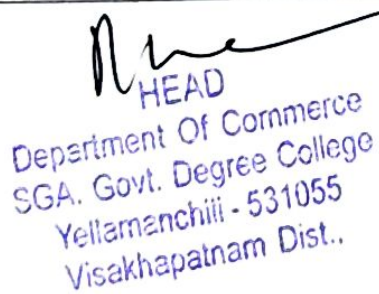 HEAD
Department Of Commerce
SGA. Govt. Degree College
Yellamanchili - 531055
Visakhapatnam Dist..